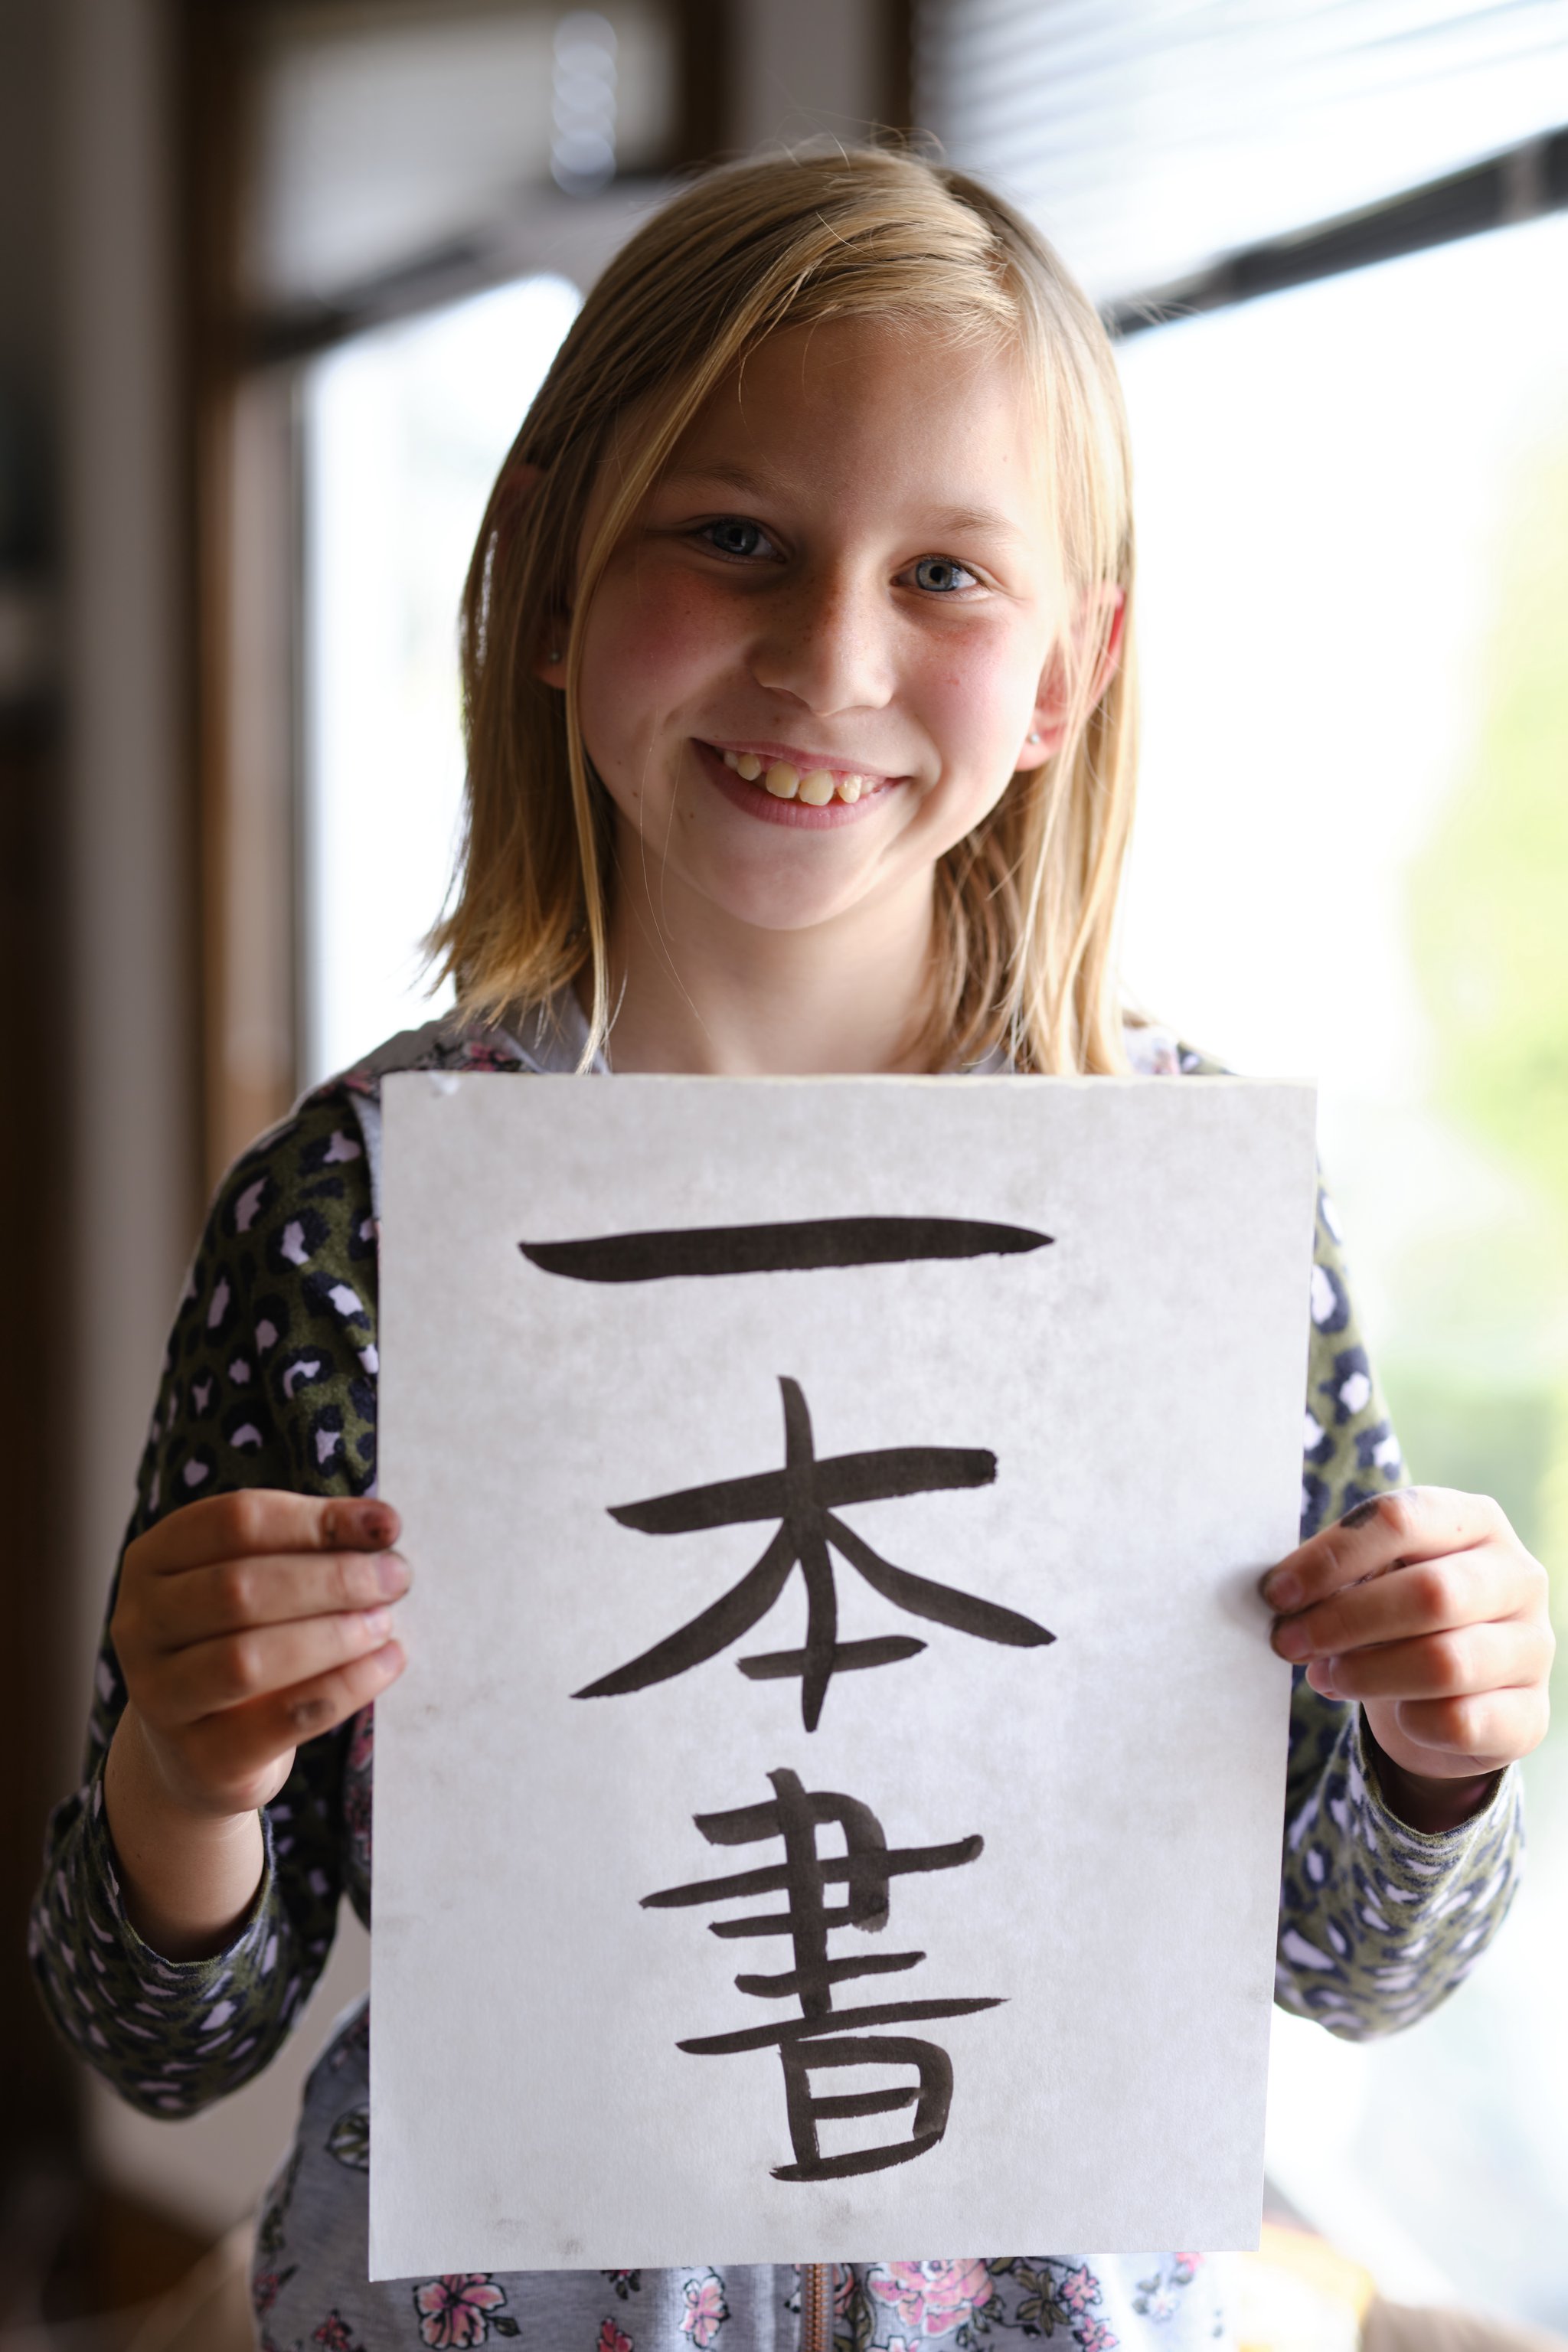 一本書